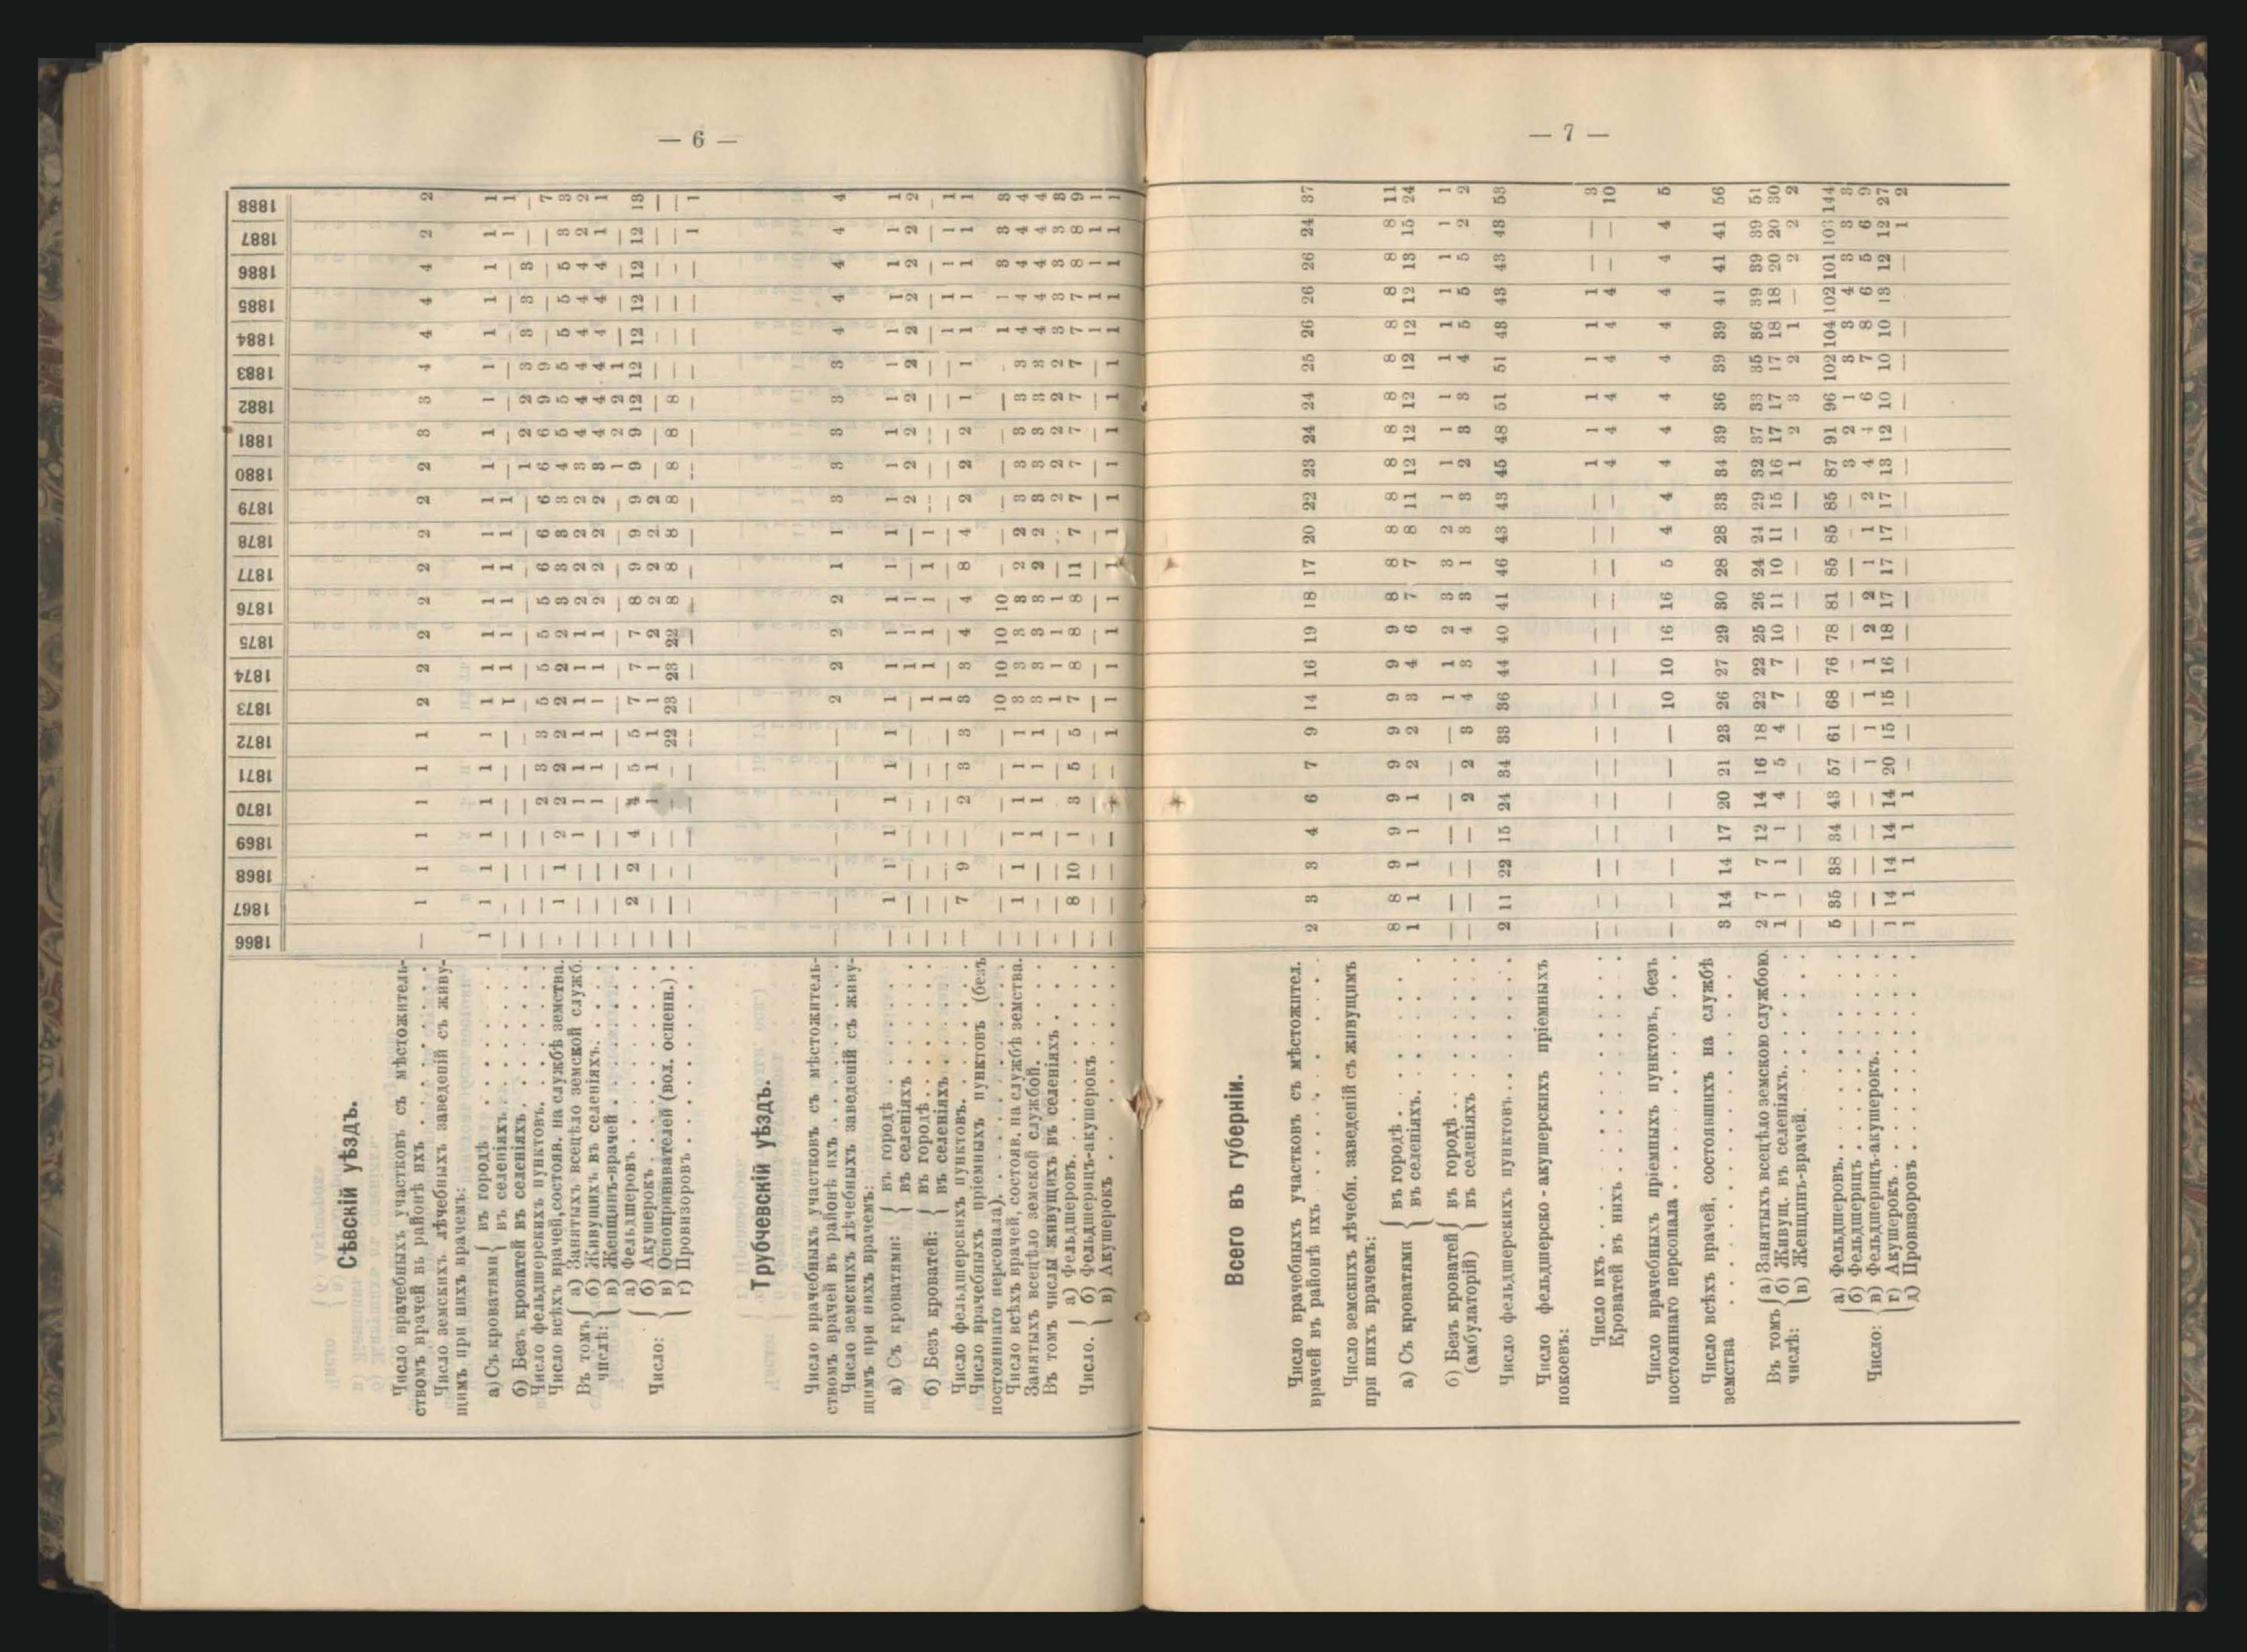 — 6 —
1866 1867 1868 1869 1870 1871 1872 1873 1874 1875 1876 1877 1878 1879 1880 1881 1882 1883 1884 1885 1886 1887 1888
Сѣвскій уѣздъ.
Число врачебныхъ участковъ съ мѣстожитель-
ствомъ врачей въ районѣ ихъ . . . . . — 1 1 1 1 1 1 2 2 2 2 2 2 2 2 3 3 4 4 4 4 2 2
Число земскихъ лѣчебныхъ заведеній съ живу-
щимъ при нихъ врачемъ:
а) Съ кроватями { въ городѣ . . . . . 1 1 1 1 1 1 1 1 1 1 1 1 1 1 1 1 1 1 1 1 1 1 1
въ селеніяхъ . . . . — — — — — — — 1 1 1 1 1 1 1 — — — — — — — 1 1
б) Безъ кроватей въ селеніяхъ . . . . — — — — — — — — — — — — — — 1 2 2 3 3 3 3 — —
Число фельдшерскихъ пунктовъ. . . . . — — — — 2 3 3 5 5 5 5 6 6 6 6 6 9 9 — — — — 7
Число всѣхъ врачей, состояв. на службѣ земства. — 1 1 2 2 2 2 2 2 2 3 3 3 3 4 5 5 5 5 5 5 3 3
Въ томъ числѣ: { а) Занятыхъ всецѣло земской служб. — — — 1 1 1 1 1 1 1 2 2 2 2 3 4 4 4 4 4 4 2 2
б) Живущихъ въ селеніяхъ. . . . — — — — 1 1 1 1 1 1 2 2 2 2 3 4 4 4 4 4 4 1 1
в) Женщинъ-врачей . . . . . — — — — — — — — — — — — — — 1 2 2 1 — — — — —
Число: { а) Фельдшеровъ . . . . . — 2 2 4 4 5 5 7 7 7 8 9 9 9 9 9 12 12 12 12 12 12 13
б) Акушерокъ . . . . . — — — — 1 1 1 1 1 2 2 2 2 2 — — — — — — — — —
в) Оспопрививателей (вол. оспенн.) . — — — — — — 22 23 23 22 8 8 8 8 8 8 8 — — — — — —
г) Провизоровъ . . . . . — — — — — — — — — — — — — — — — — — — — — 1 1
Трубчевскій уѣздъ.
Число врачебныхъ участковъ съ мѣстожитель-
ствомъ врачей въ районѣ ихъ . . . . . — — — — — — — 2 2 2 2 1 1 3 3 3 3 3 4 4 4 4 4
Число земскихъ лѣчебныхъ заведеній съ живу-
щимъ при нихъ врачемъ:
а) Съ кроватями: { въ городѣ . . . . . — 1 1 1 1 1 1 1 1 1 1 1 1 1 1 1 1 1 1 1 1 1 1
въ селеніяхъ . . . . . — — — — — — — — 1 1 1 — — 2 2 2 2 2 2 2 2 2 2
б) Безъ кроватей: { въ городѣ . . . . . — — — — — — — 1 1 1 1 1 1 — — — — — — — — — —
въ селеніяхъ . . . . . — — — — — — — 1 — — — — — — — — — — 1 1 1 1 1
Число фельдшерскихъ пунктовъ. . . . . — 7 9 — 2 3 3 3 3 4 4 8 4 2 2 2 1 1 1 1 1 1 1
Число врачебныхъ пріемныхъ пунктовъ (безъ
постояннаго персонала). . . . . — — — — — — — 10 10 10 10 — — — — — — — 1 1 3 3 3
Число всѣхъ врачей, состояв. на службѣ земства. — 1 1 1 1 1 1 3 3 3 3 2 2 3 3 3 3 3 4 4 4 4 4
Занятыхъ всецѣло земской службой. . . . . — — — 1 1 1 1 3 3 3 3 2 2 3 3 3 3 3 4 4 4 4 4
Въ томъ числѣ живущихъ въ селеніяхъ . . . . — — — — — — — 1 1 1 1 — — 2 2 2 2 2 3 3 3 3 3
Число. { а) Фельдшеровъ. . . . . — 8 10 1 3 5 5 7 8 8 8 11 7 7 7 7 7 7 7 7 8 8 9
б) Фельдшерицъ-акушерокъ . . . . — — — — — — — — — — — — — — — — — — 1 1 1 1 1
в) Акушерокъ . . . . . — — — — — — 1 1 1 1 1 1 1 1 1 1 1 1 1 1 1 1 1
— 7 —
Всего въ губерніи.
Число врачебныхъ участковъ съ мѣстожител.
врачей въ районѣ ихъ . . . . . 2 3 3 4 6 7 9 14 16 19 18 17 20 22 23 24 24 25 26 26 26 24 37
Число земскихъ лѣчебн. заведеній съ живущимъ
при нихъ врачемъ:
а) Съ кроватями { въ городѣ . . . . . 8 8 9 9 9 9 9 9 9 9 8 8 8 8 8 8 8 8 8 8 8 8 11
въ селеніяхъ. . . . . 1 1 1 1 1 2 2 3 4 6 7 7 8 11 12 12 12 12 12 12 13 15 24
б) Безъ кроватей { въ городѣ . . . . — — — — — — — 1 1 2 3 3 2 1 1 1 1 1 1 1 1 1 1
(амбулаторій) въ селеніяхъ . . . . — — — — 2 2 3 4 3 4 3 1 3 3 2 3 3 4 5 5 5 2 2
Число фельдшерскихъ пунктовъ. . . . . 2 11 22 15 24 34 33 36 44 40 41 46 43 43 45 48 51 51 43 43 43 43 53
Число фельдшерско-акушерскихъ пріемныхъ
покоевъ:
Число ихъ . . . . . — — — — — — — — — — — — — — 1 1 1 1 1 1 — — 3
Кроватей въ нихъ . . . . . — — — — — — — — — — — — — — 4 4 4 4 4 4 — — 10
Число врачебныхъ пріемныхъ пунктовъ, безъ
постояннаго персонала . . . . . — — — — — — — 10 10 16 16 5 4 4 4 4 4 4 4 4 4 4 5
Число всѣхъ врачей, состоявшихъ на службѣ
земства . . . . . 3 14 14 17 20 21 23 26 27 29 30 28 28 33 34 39 36 39 39 41 41 41 56
Въ томъ числѣ: { а) Занятыхъ всецѣло земскою службою. 2 7 7 12 14 16 18 22 22 25 26 24 24 29 32 37 33 35 36 39 39 39 51
б) Живущ. въ селеніяхъ. . . . . 1 1 1 1 4 5 4 7 7 10 11 10 11 15 16 17 17 17 18 18 20 20 30
в) Женщинъ-врачей. . . . . — — — — — — — — — — — — — — 1 2 3 2 1 — 2 2 2
Число: { а) Фельдшеровъ. . . . . 5 35 38 34 43 57 61 68 76 78 81 85 85 85 87 91 96 102 104 102 101 103 144
б) Фельдшерицъ . . . . . — — — — — — — — — — — — — — 3 2 1 3 3 4 3 3 3
в) Фельдшерицъ-акушерокъ. . . . . — — — — — 1 1 1 1 2 2 1 1 2 4 4 6 7 8 6 5 6 9
г) Акушерокъ . . . . . 1 14 14 14 14 20 15 15 16 18 17 17 17 17 13 12 10 10 10 13 12 12 27
д) Провизоровъ . . . . . 1 1 1 1 1 — — — — — — — — — — — — — — — — 1 2